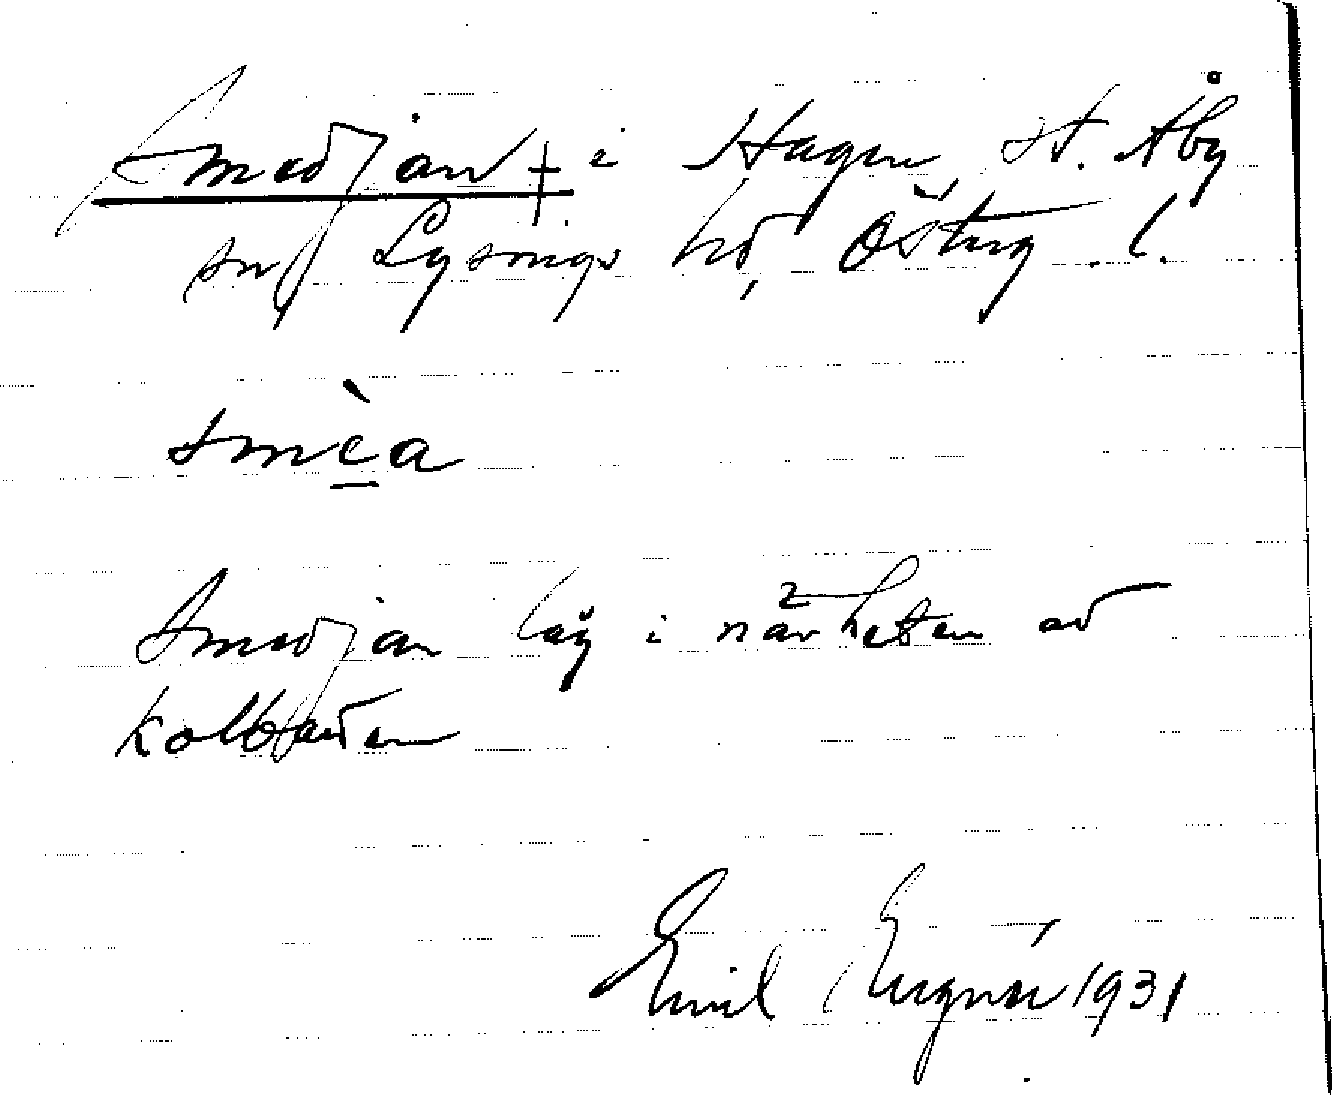 Smedjan † i Hagen St. Åby
sn, Lysings hd, Österg. l.
smèa
Smedjan låg i närheten av
kolbladen
Emil 1931